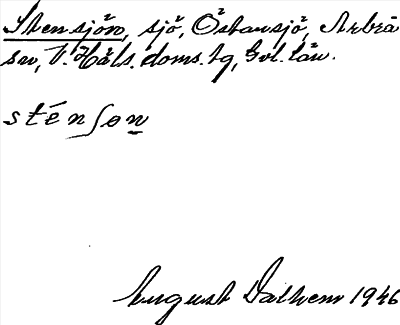 Stensjön, sjö, Östansjö, Arbrå
sn, V. Häls. doms. tg, Gvl. län.
sténʃo̱n
August Dalhem 1946